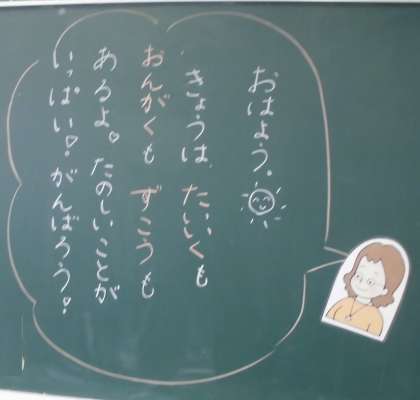 おはよう。
きょうは、たいいくも
おんがくも ずこうも
あるよ。たのしいことが
いっぱい!がんばろう!